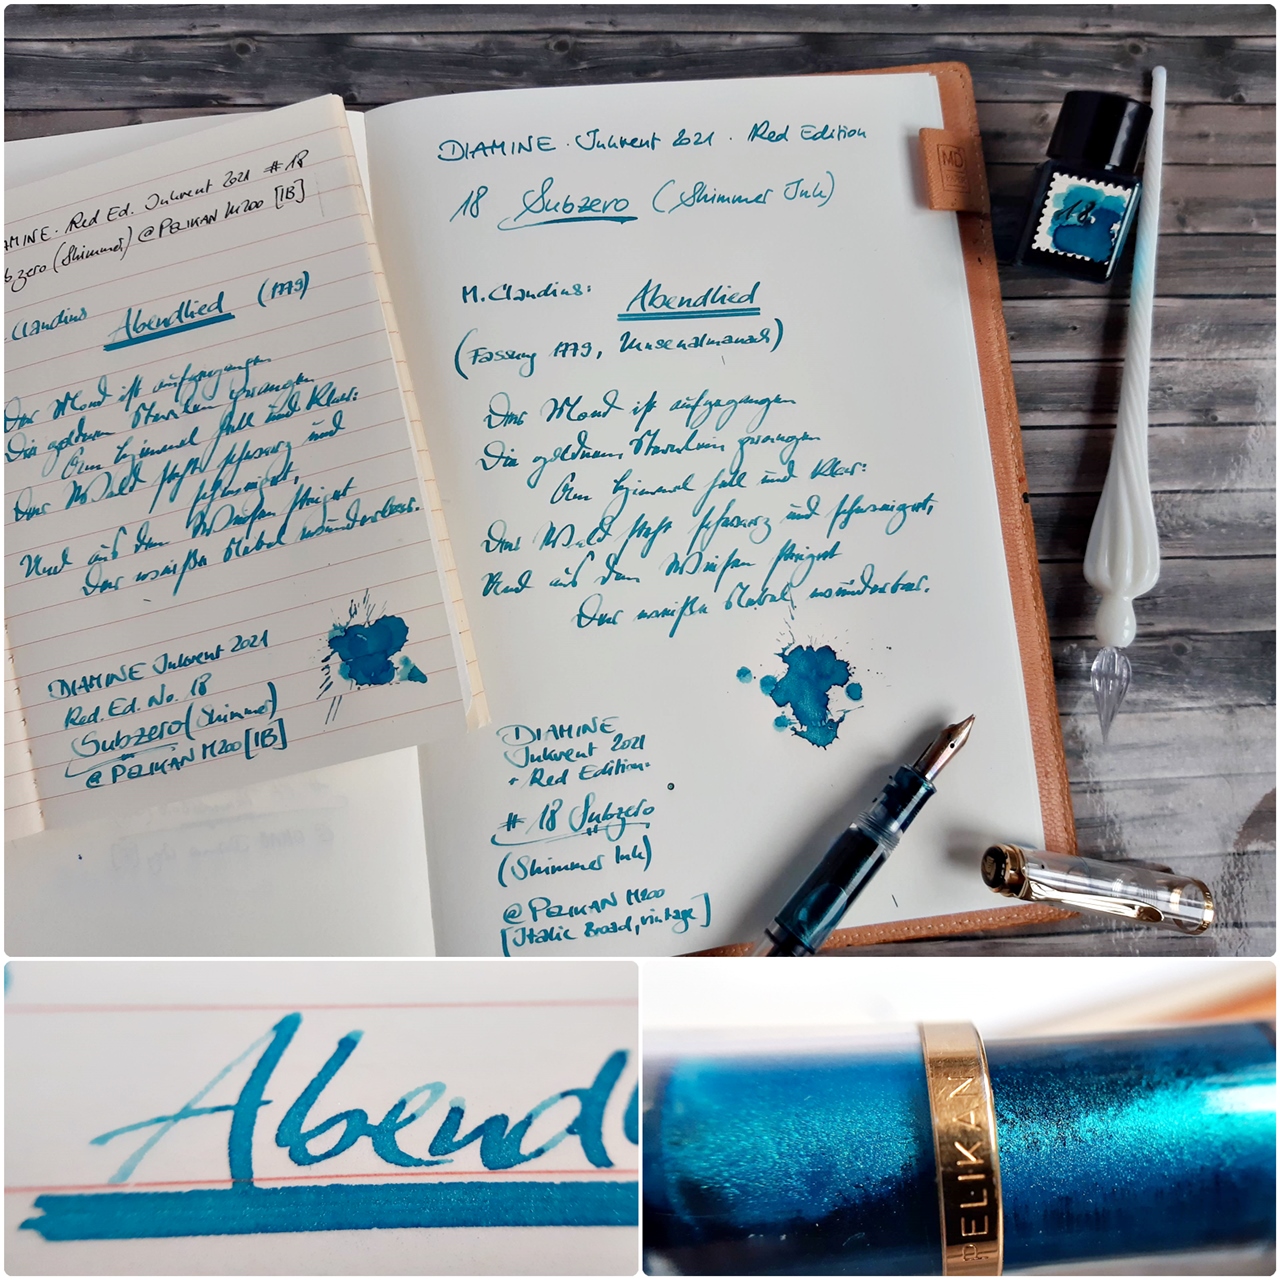 AMINE. Red Ed. Inkvent 2021 #18
bzero (Shimmer) @ PELIKAN M200 [IB]
. Claudius Abendlied (1779)
Der Mond ist aufgegangen
Die goldnen Sternlein prangen
Am Himmel hell und klar:
Der Wald steht schwarz und
schweiget,
Und aus den Wiesen steiget
Der weiße Nebel wunderbar.
DIAMINE Inkvent 2021
Red. Ed. No. 18
Subzero (Shimmer)
@ PELIKAN M200 [IB]
DIAMINE · Inkvent 2021 · Red Edition
18 Subzero (Shimmer Ink)
M. Claudius: Abendlied
(Fassung 1779, Musenalmanach)
Der Mond ist aufgegangen
Die goldnen Sternlein prangen
Am Himmel hell und klar:
Der Wald steht schwarz und schweiget,
Und aus den Wiesen steiget
Der weiße Nebel wunderbar.
DIAMINE
Inkvent 2021
· Red Edition ·
# 18 Subzero
(Shimmer Ink)
@ PELIKAN M200
[Italic Broad, vintage]
MD
18
Abend
PELIKAN